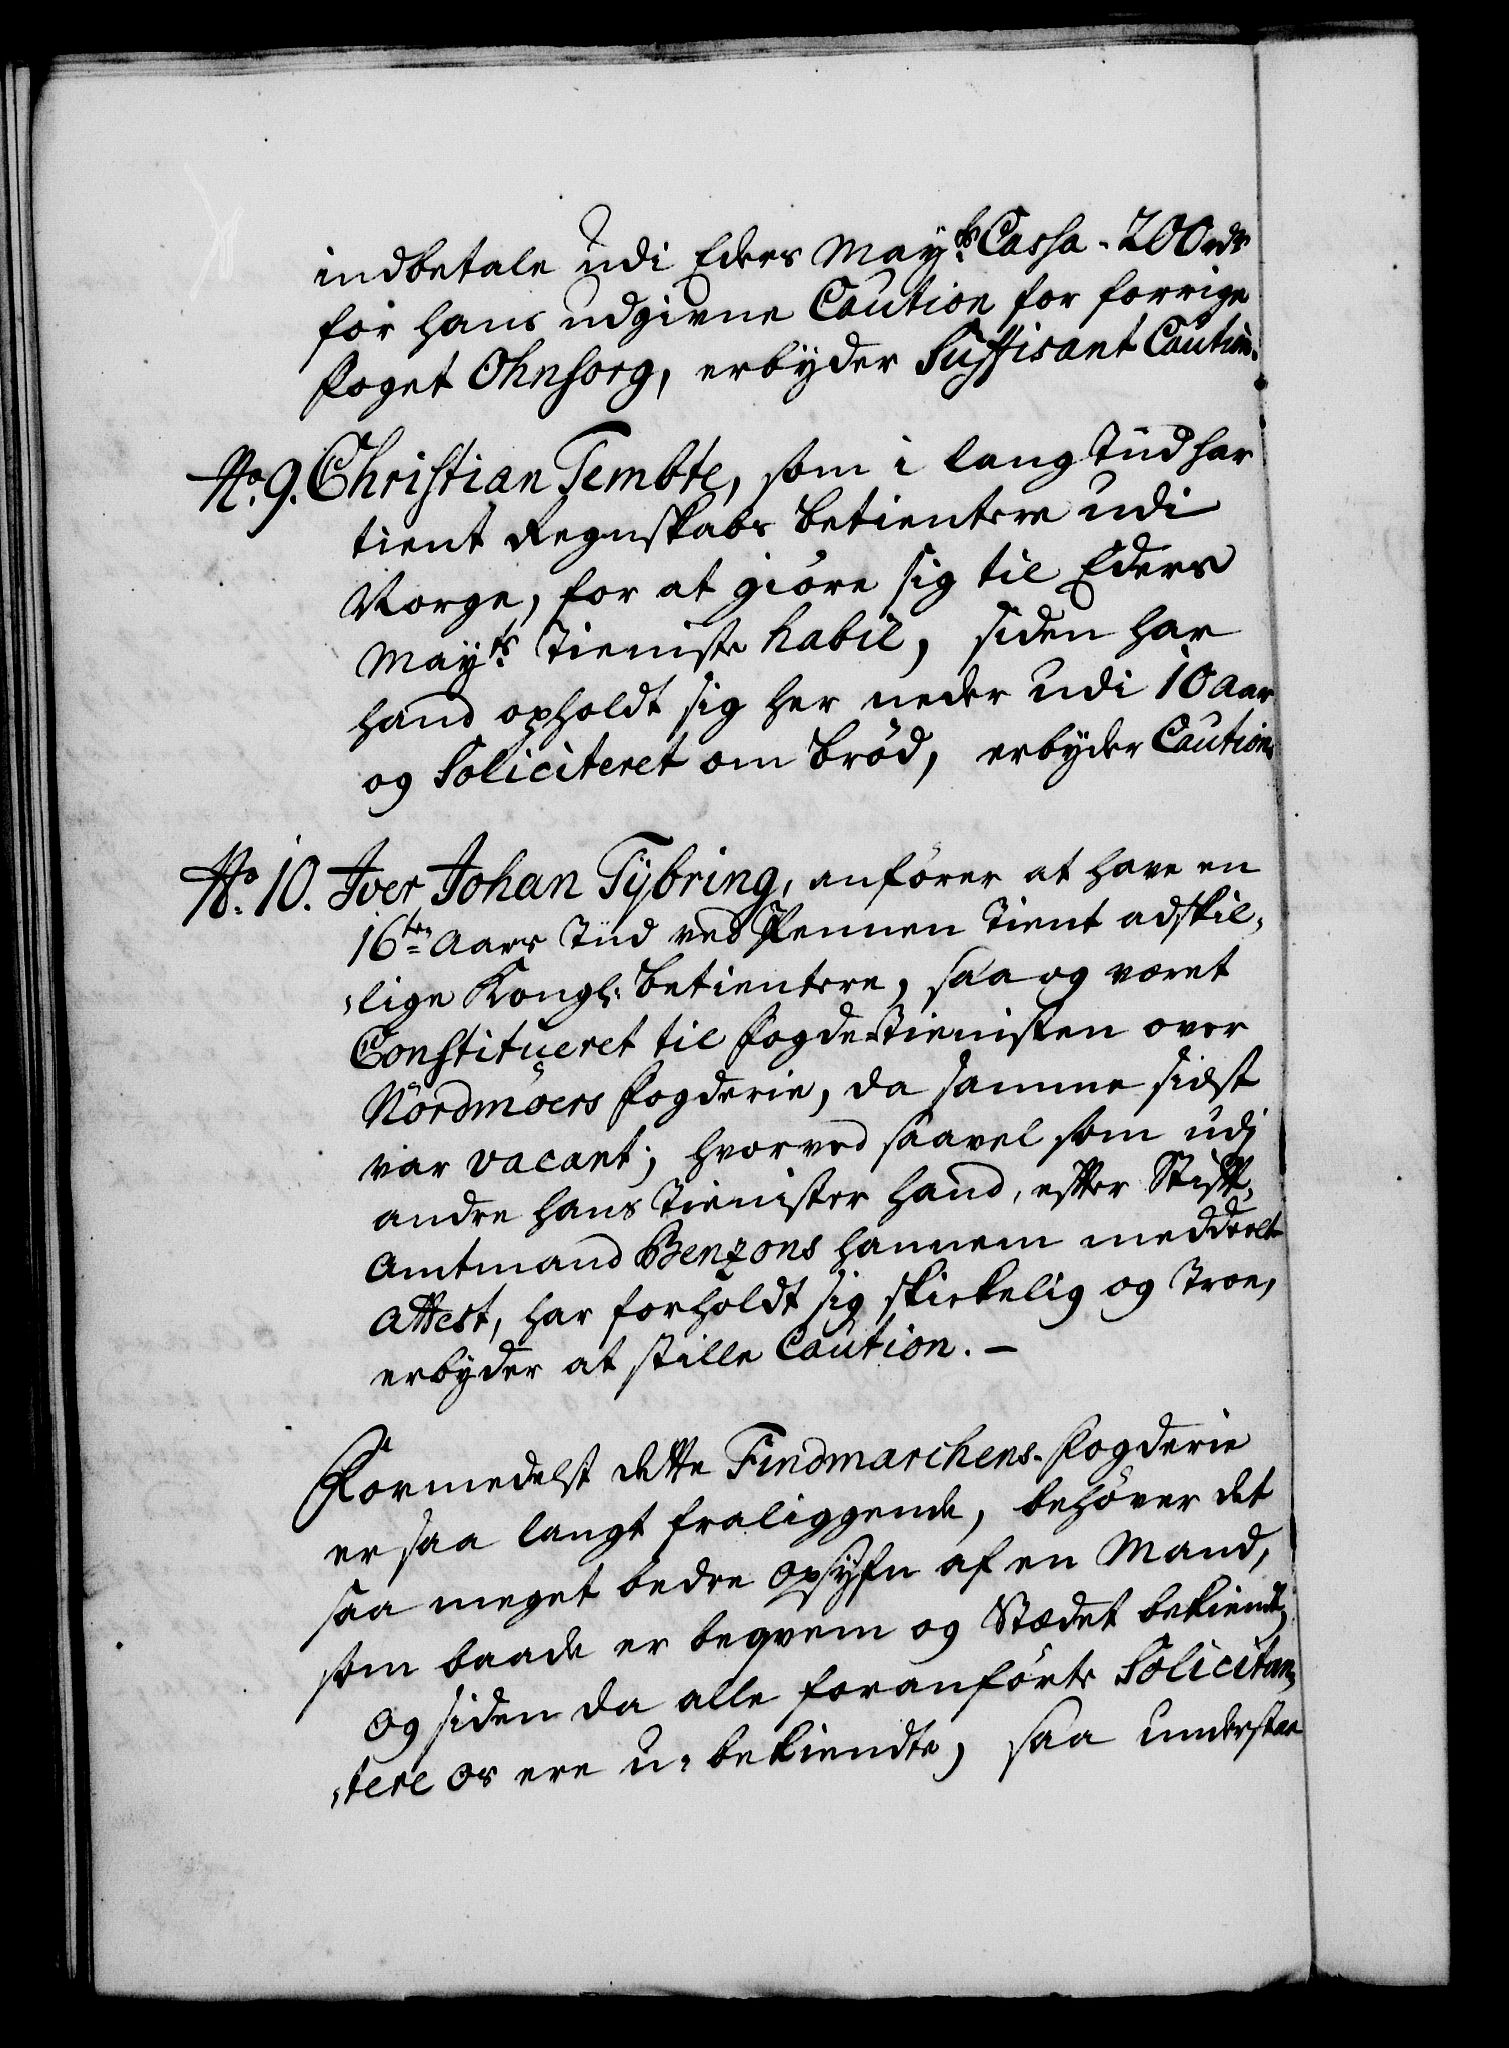 indbetale udi Eders Mayts Cassa - 200 rdr
for hans udgivne Caution for forrige
Foget Ohnsorg, erbyder Suffisant Caution.
No. 9. Christian Tembte, som i lang Tiid har
tient Regnskabs betientere udi
Norge, for at giöre sig til Eders
Mayts Tieniste habil, siden har
hand opholdt sig her neder udi 10 aar
og Soliciteret om bröd, erbyder Caution
No. 10. Iver Johan Tÿbring, anförer at have en
16ten Aars Tiid ved Pennen tient adskil,
,lige Kongl: betientere, saa og været
Constitueret til Fogde-Tienisten over
Nordmöers Fogderie, da samme sidst
var vacant; hvorved saavel som udj
andre hans Tienister hand, efter Stift,
Amtmand Benzons hannem meddeelte
Attest, har forholdt sig skickelig og Troe,
erbyder at stille Caution. —
Formedelst dette Findmarchens-Fogderie
er saa langt fraliggende, behöver det
saa meget bedre Opsyfn af en Mand,
som baade er beqvem og Stædet bekiendt,
og siden da alle foranförte Solicitan,
,tere os ere u-bekiendte, saa understaae